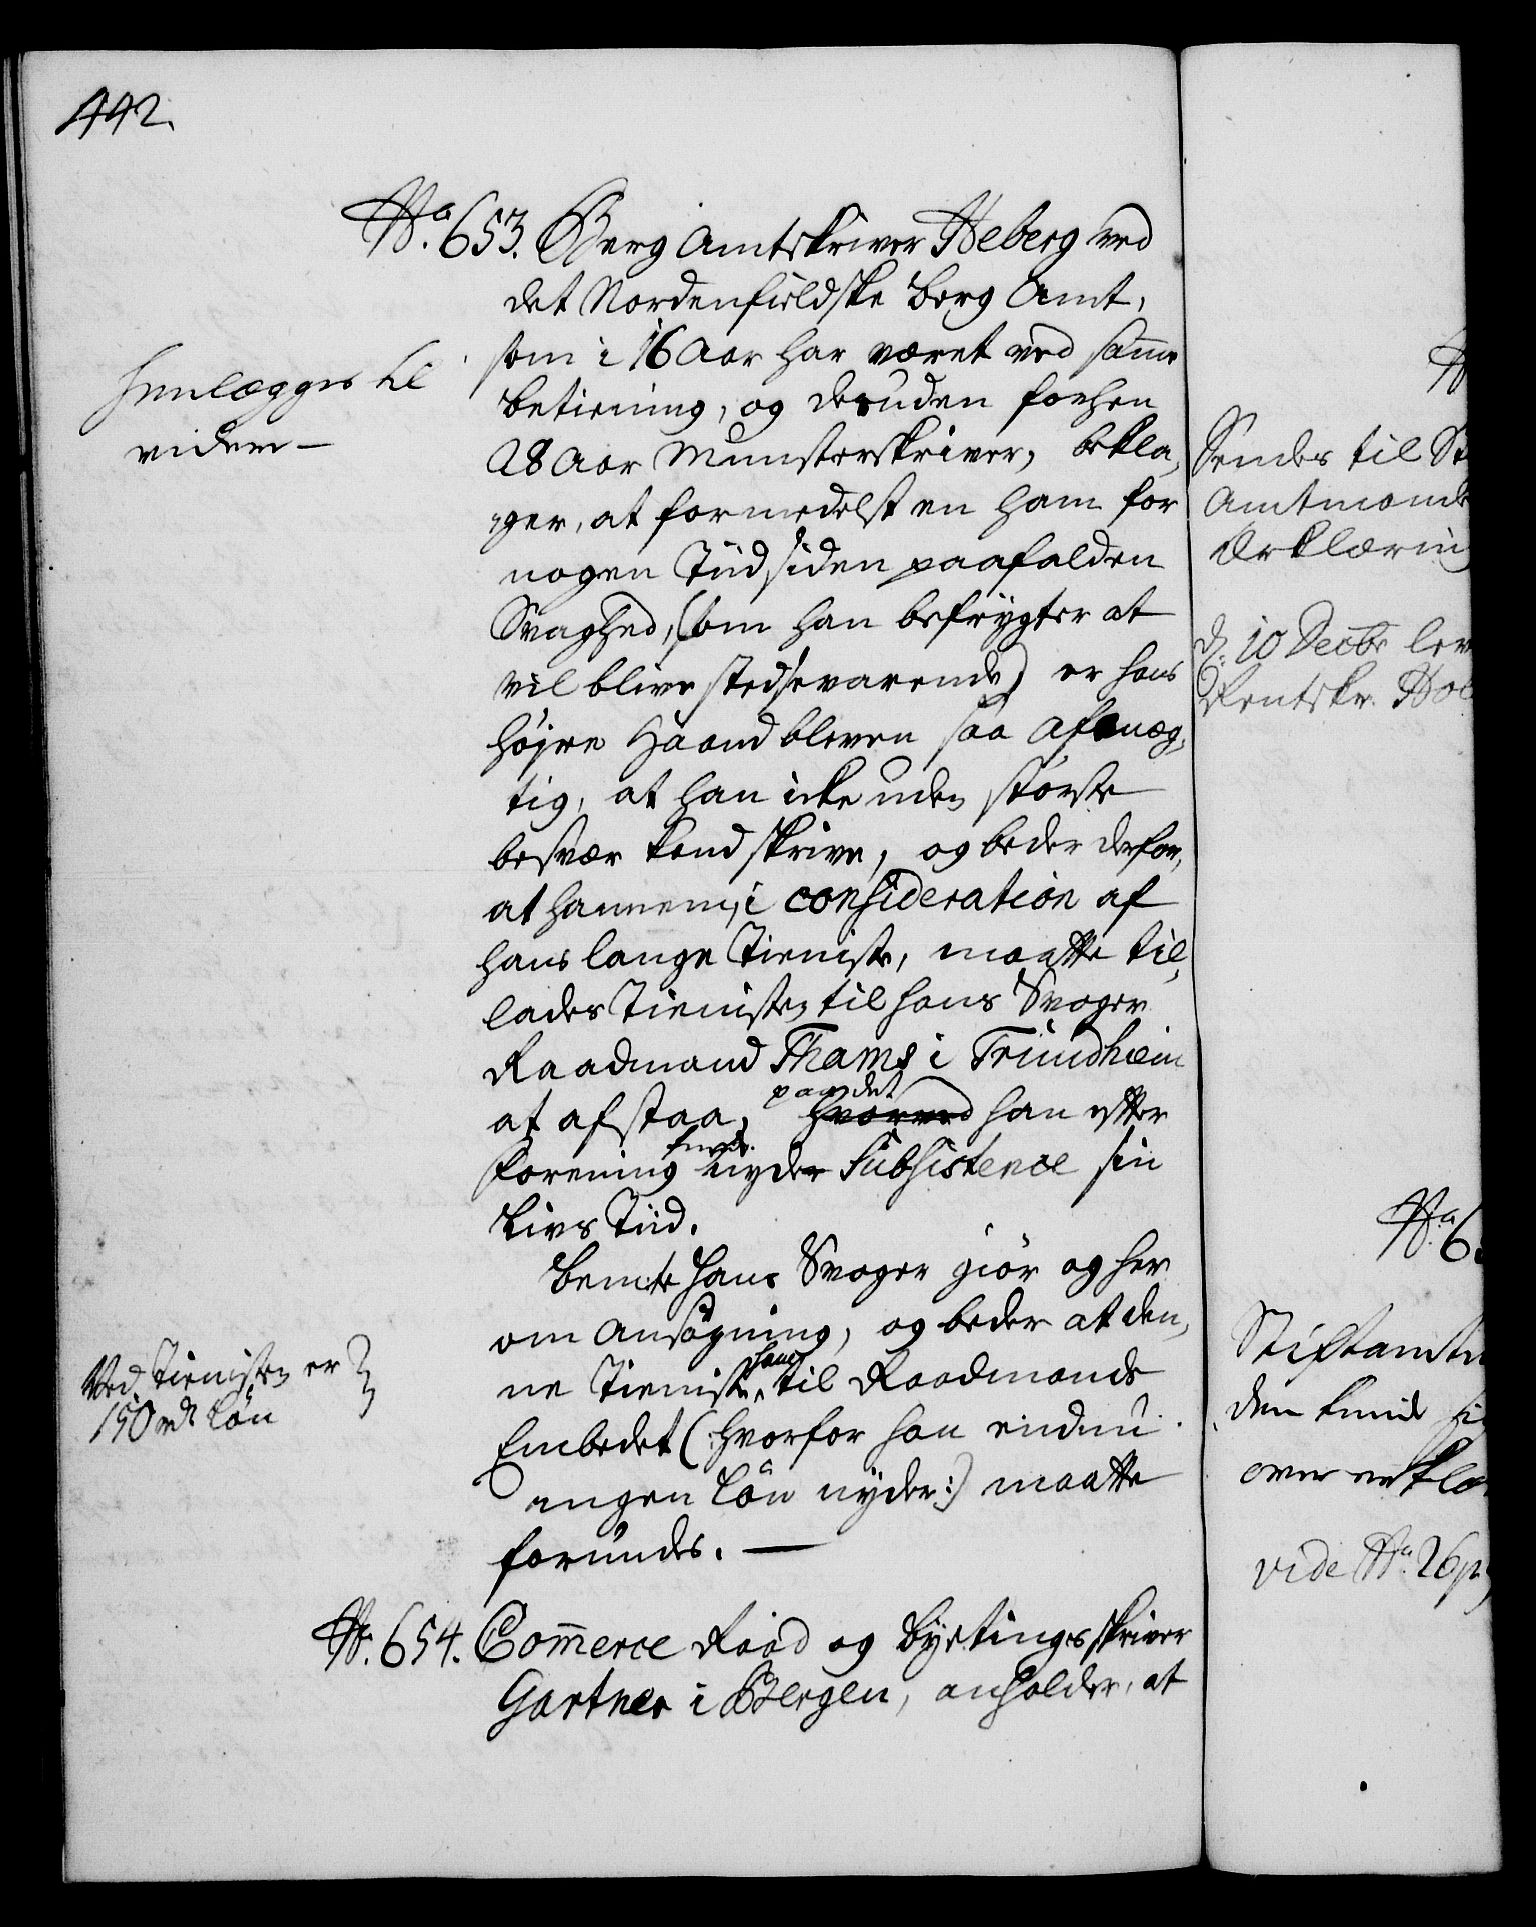 442.
No. 653. Berg Amtskriver Heberg ved
det Nordenfieldske Berg Amt,
som i 16 Aar har været ved samme
betiening, og desuden forhen
28 Aar Munsterskriver, bekla,
ger, at formedelst en ham for
nogen Tiid siden paafalden
Svaghed, (som han befrygter at
vil blive stedsevarende) er hans
højre Haand bleven saa afmæg,
tig, at han icke uden største
besvær kand skrive, og beder derfor,
at hannem, i consideration af
hans lange Tieniste, maatte til,
lades Tienisten til hans Svoger
Raadmand Thams i Trundhiem
at afstaa, paa det hvorved han efter
forening kunde nyder Subsistence sin
Livs Tiid.
Bemte hans Svoger giør og her
om Ansøgning, og beder at den,
ne Tieniste ham til Raadmands
Embedet (: hvorfor han endnu
ingen Løn nyder :) maatte
forundes. —
No. 654. Commerce Raad og Byetingsskriver
Gartner i Bergen, anholder, at
henlægges til
videre —
Ved Tienisten er
150 rdr Løn
Sendes til St
Amtmands
Erklæring
d. 10 Decbr lev
Rentskr. Hol
No 6
Stiftamtm
den kunde
over erklæ
vide No. 26